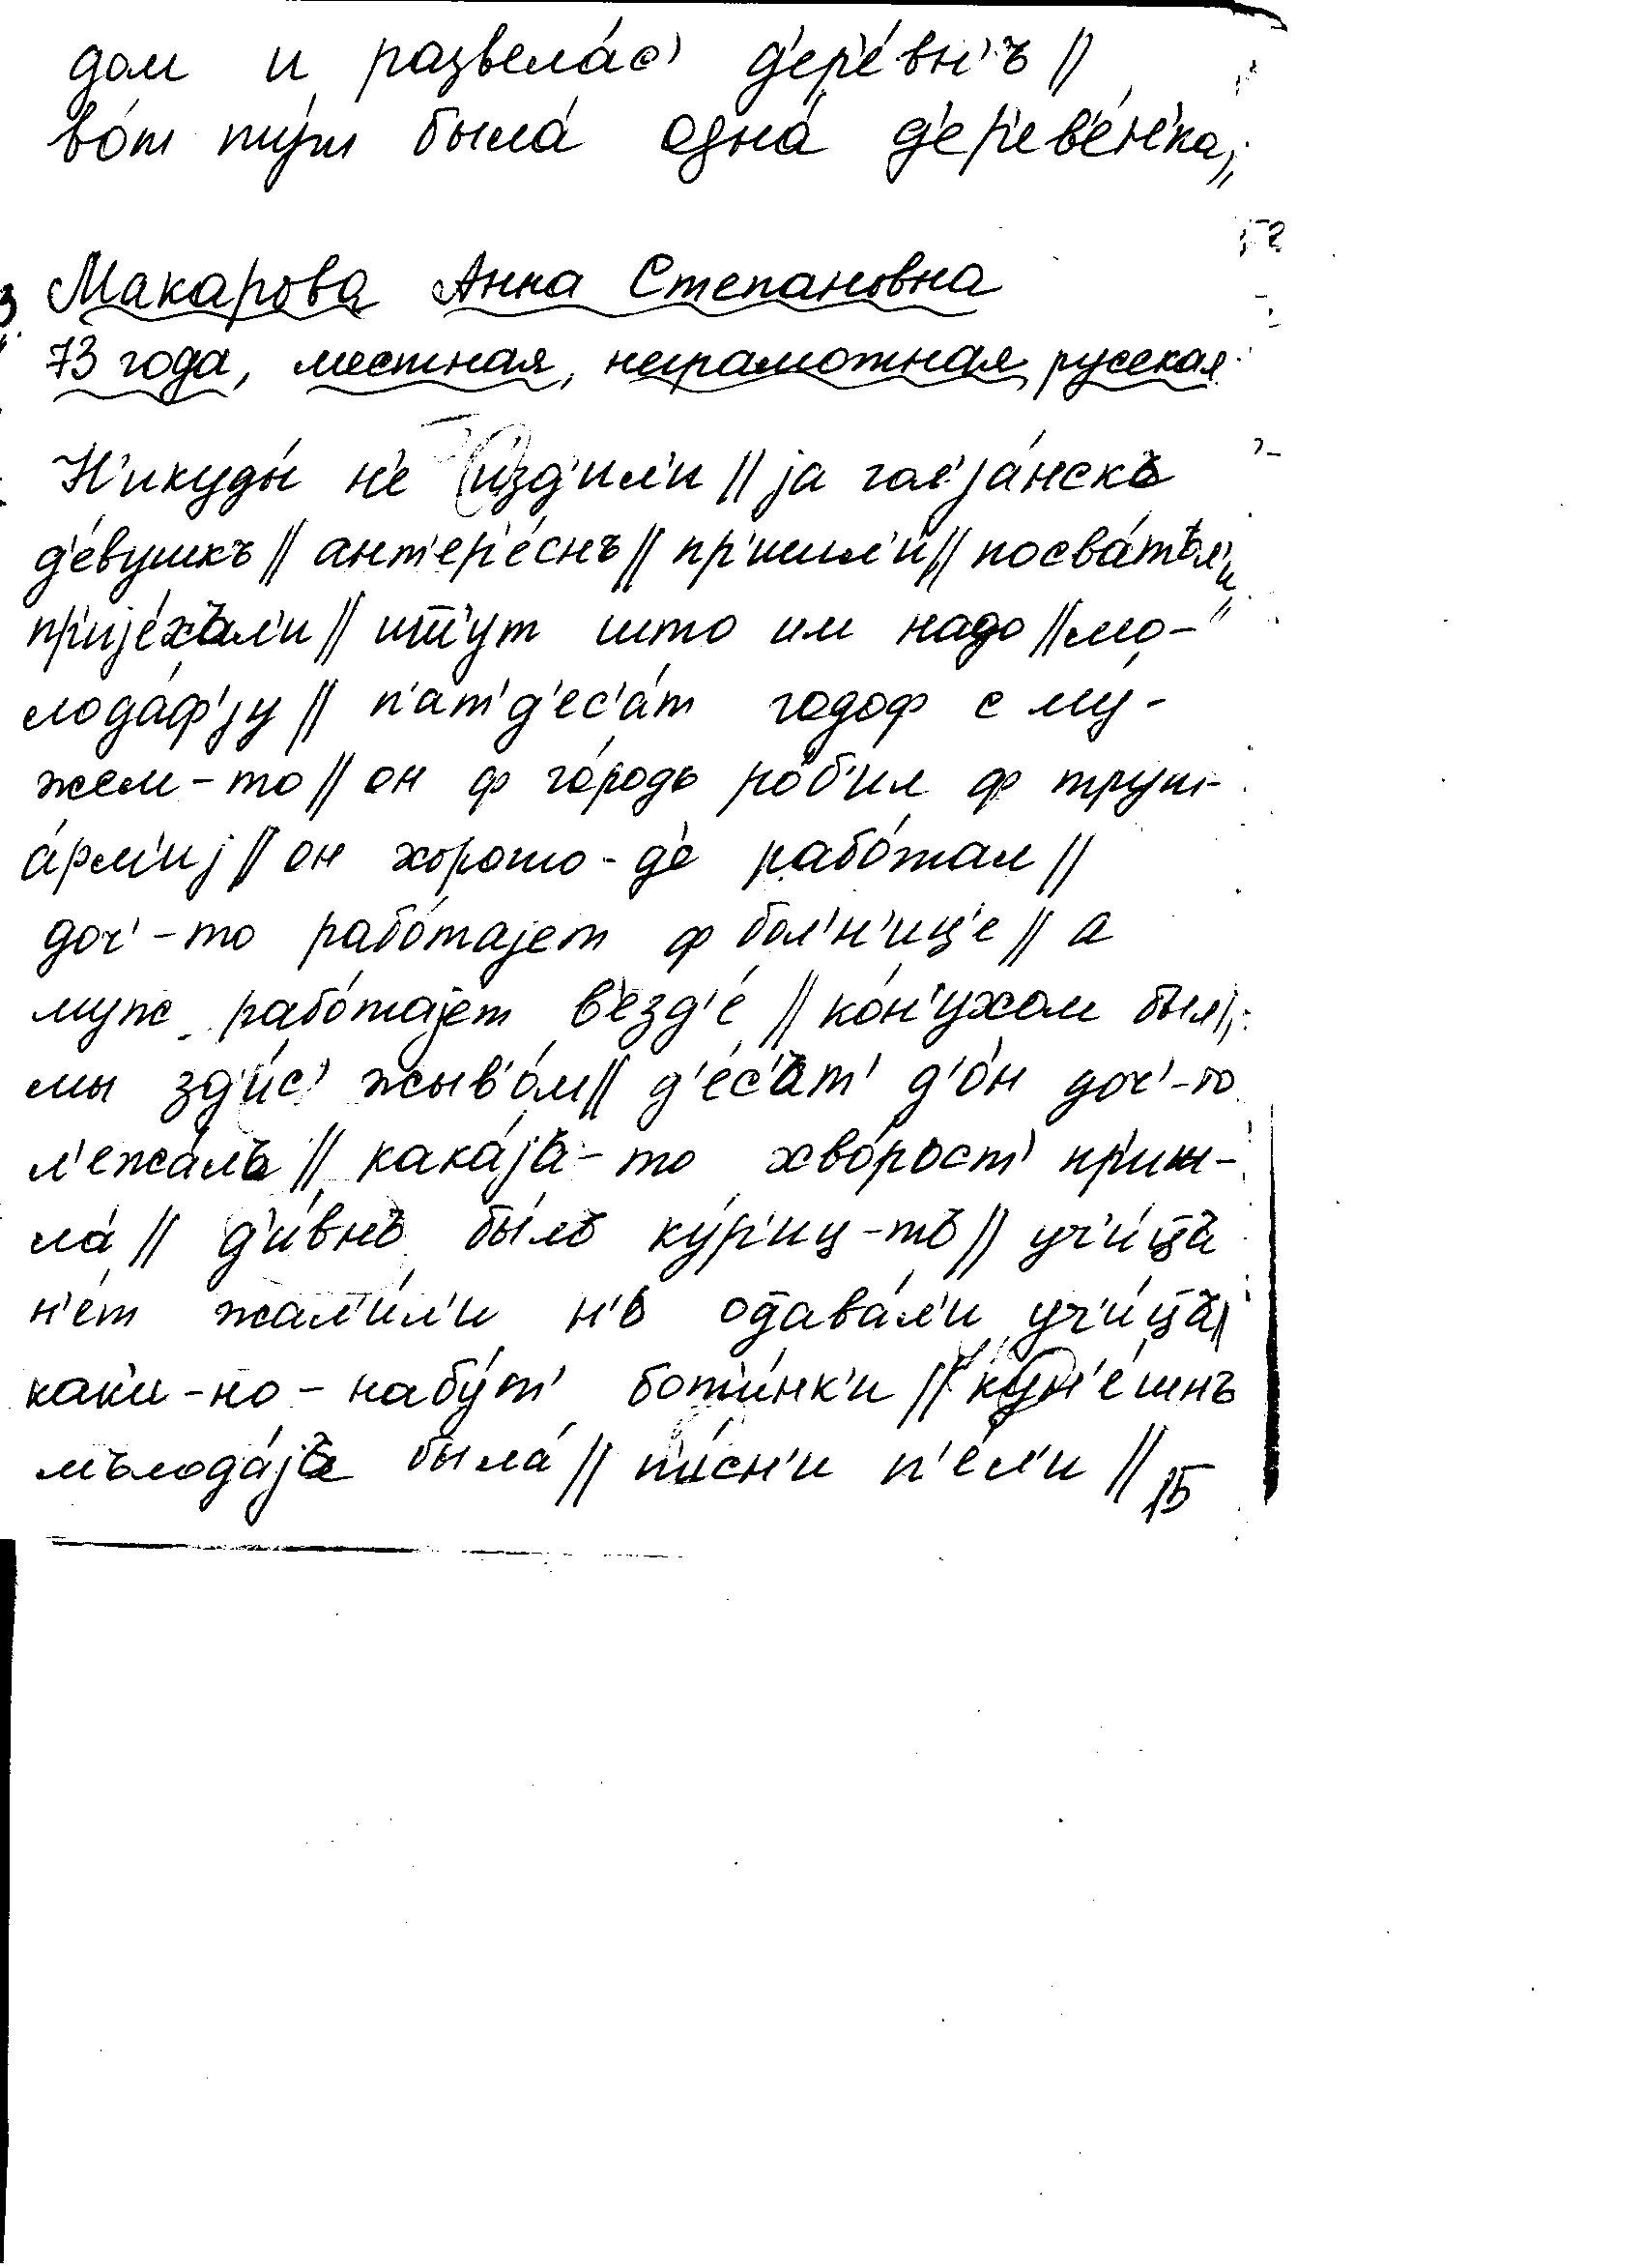 дом и развела́с' д'ер'е́вн'ъ //
во́т ту́т была́ одна́ д'ер'ев'е́н'ка //
Макарова Анна Степановна
73 года, местная, неграмотная, русская
Н'икуды́ н'е и́зд'ил'и // jа гол'jа́нскъ
д'е́вушкъ // ант'ер'е́снъ // пр'ишл'и́ // посва́тъл'и
пр'иjе́хъл'и // ишт'ут што им надо // мо-
лода́ф'jу // п'ат'д'ес'а́т годоф с му́-
жем-то // он ф го́родь ро́б'ил ф труд-
а́рм'иj // он хорошо-де́ рабо́тал //
доч'-то рабо́таjет ф бол'н'иц'е // а
муж рабо́таjет в'езд'е́ // ко́н'ухом был //
мы зд'и́с' жыв'о́м // д'е́с'ът' д'о́н доч'-то
л'ежа́лъ // кака́jъ-то хво́рост' пр'иш-
ла́ // д'и́внъ бы́лъ ку́р'иц-тъ // уч'и́цъ
н'е́т жал'и́л'и н'ь одава́л'и уч'и́цъ //
как'и-но-набу́т' бот'и́нк'и // кун'е́шнъ
мълода́jъ была́ // п'и́сн'и п'е́л'и //
15